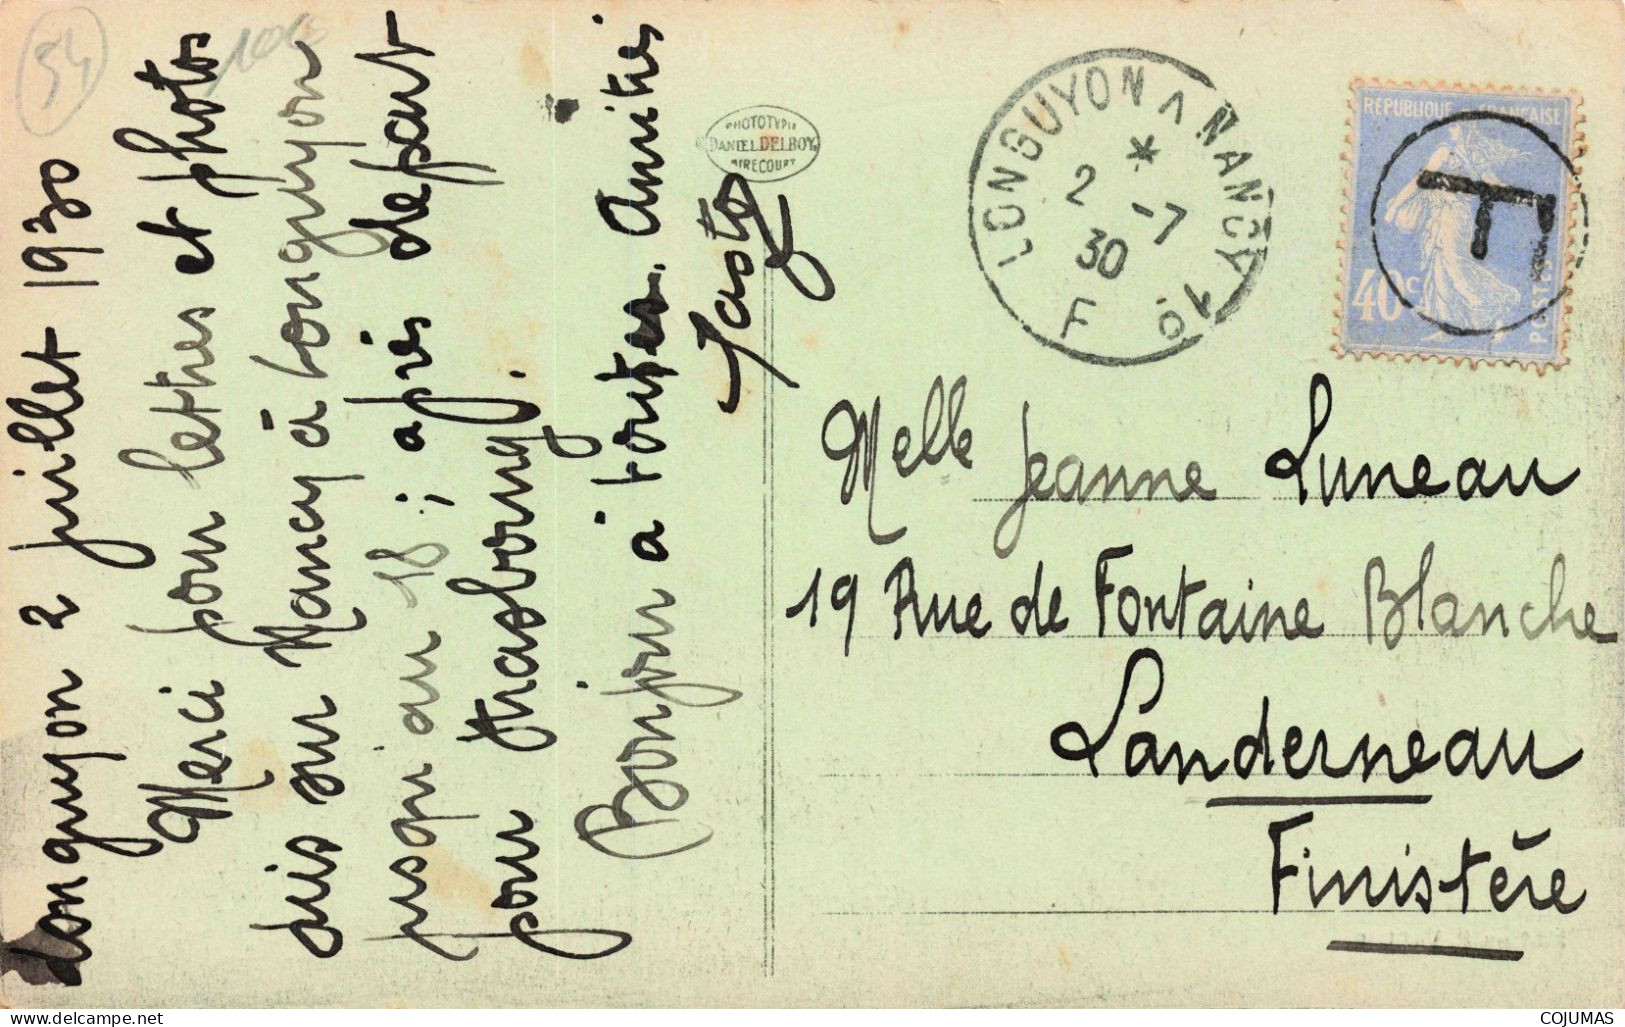 54
100
Longuyon 2 juillet 1930
Merci pour lettres et photos
suis sur Nancy à Longuyon
jusqu'au 18 ; après départ
pour Strasbourg.
Bonjour à toutes. Amitiés
PHOTOTYPIE
DANIEL DELBOY
MIRECOURT
LONGUYON A NANCY
*
2 -7
30
1°
F
RÉPUBLIQUE FRANÇAISE
40c
POSTES
T
Melle Jeanne Luneau
19 Rue de Fontaine Blanche
Landerneau
Finistère
www.delcampe.net
COJUMAS